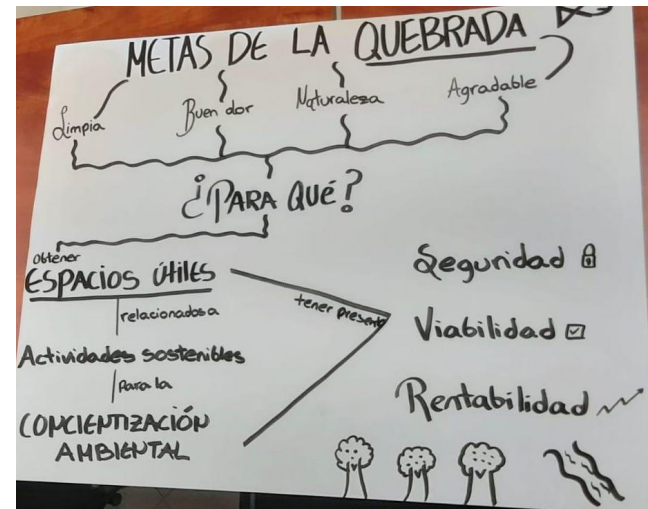 METAS DE LA QUEBRADA
Limpia
Buen dor
Naturaleza
Agradable
¿PARA QUÉ?
obtener
ESPACIOS ÚTILES
relacionados a
Actividades sostenibles
Para la
CONCIENTIZACIÓN
AMBIENTAL
tener present
Seguridad
Viabilidad
Rentabilidad